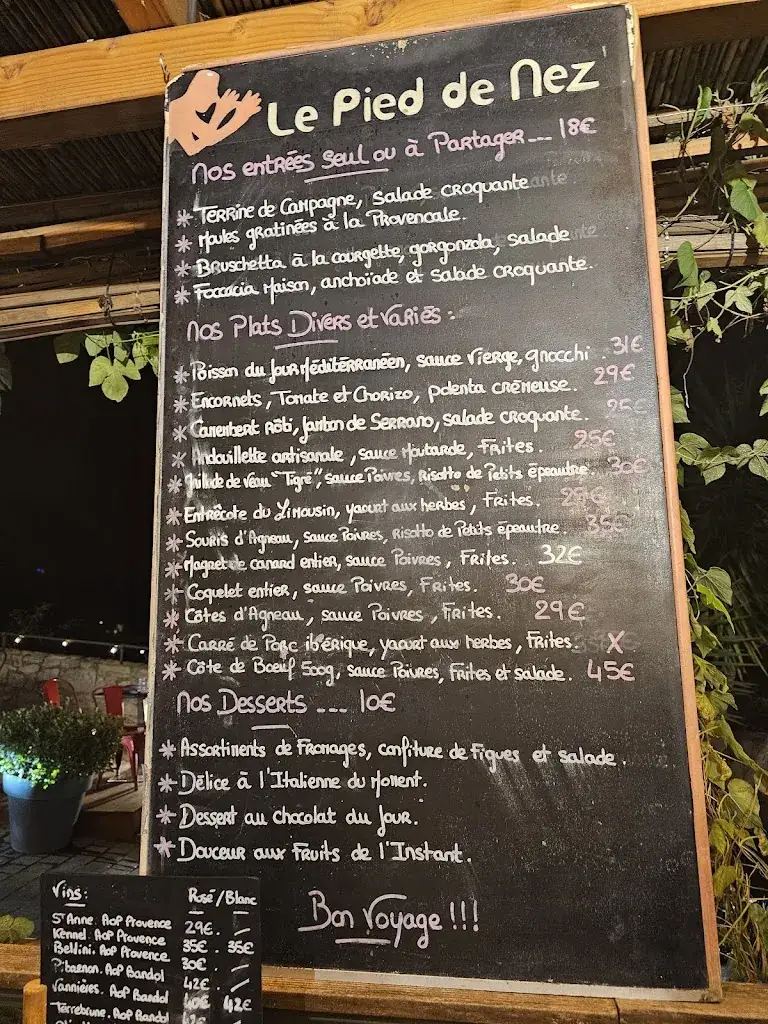 Le Pied de Nez
Nos entrées seul ou à Partager --- 18€
* Terrine de Campagne, salade croquante
* Moules gratinées à la Provencale.
* Bruschetta à la courgette, gorgonzola, salade
* Foccacia Maison, anchoïade et salade croquante.
Nos Plats Divers et variés :
* Poisson du jour Méditérranéen, sauce vierge, gnocchi . 31€
* Encornets, Tomate et Chorizo, polenta crémeuse. 29€
* Camembert rôti, jambon de Serrano, salade croquante. 25€
* Andouillette artisanale, sauce Moutarde, Frites. 25€
* de veau "Tigre", sauce Poivres, Risotto de Petits épeautre. 30€
* Entrecôte du Limousin, yaourt aux herbes, Frites.
* Souris d'Agneau, sauce Poivres, Risotto de Petits épeautre. 35€
* Magret de canard entier, sauce Poivres, Frites. 32€
* Coquelet entier, sauce Poivres, Frites. 30€
* Côtes d'Agneau, sauce Poivres, Frites. 29€
* Carré de Porc ibérique, yaourt aux herbes, Frites. X
* Côte de Boeuf 500g, sauce Poivres, Frites et salade. 45€
Nos Desserts --- 10€
* Assortiments de Fromages, confiture de Figues et salade.
* Délice à l'Italienne du Moment.
* Dessert au chocolat du Jour.
* Douceur aux Fruits de l'Instant.
Bon Voyage !!!
Vins : Rosé / Blanc
St Anne. AOP Provence 29€. /
Kennel. AOP Provence 35€. 35€
Bellini. AOP Provence 30€. /
Pibarnon. AOP Bandol 42€. /
Vannières. AOP Bandol 40€ 42€
Terrebrune. AOP Bandol